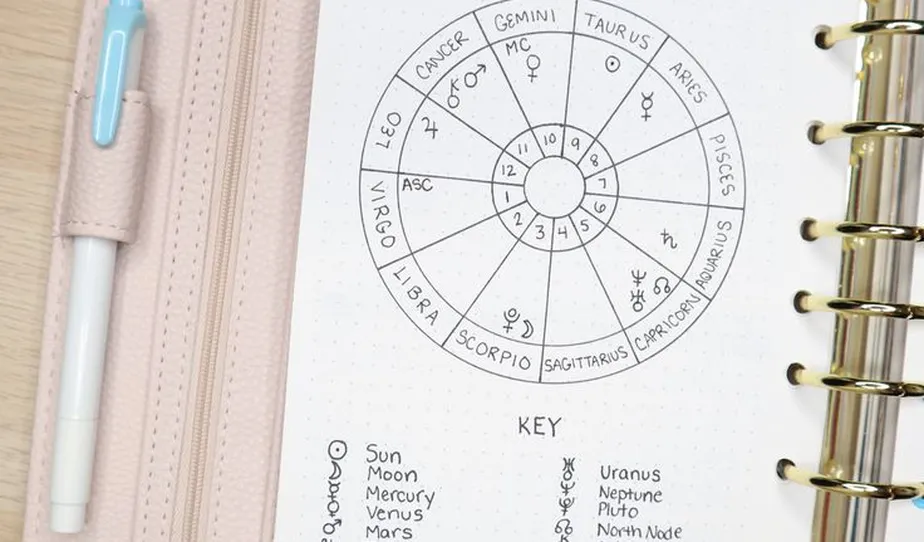 GEMINI
TAURUS
CANCER
ARIES
LEO
PISCES
VIRGO
AQUARIUS
LIBRA
CAPRICORN
SCORPIO
SAGITTARIUS
MC
ASC
11 10 9
12 8
1 7
2 3 4 5 6
KEY
☉ Sun
☽ Moon
☿ Mercury
♀ Venus
♂ Mars
♅ Uranus
♆ Neptune
Pluto
☊ North Node